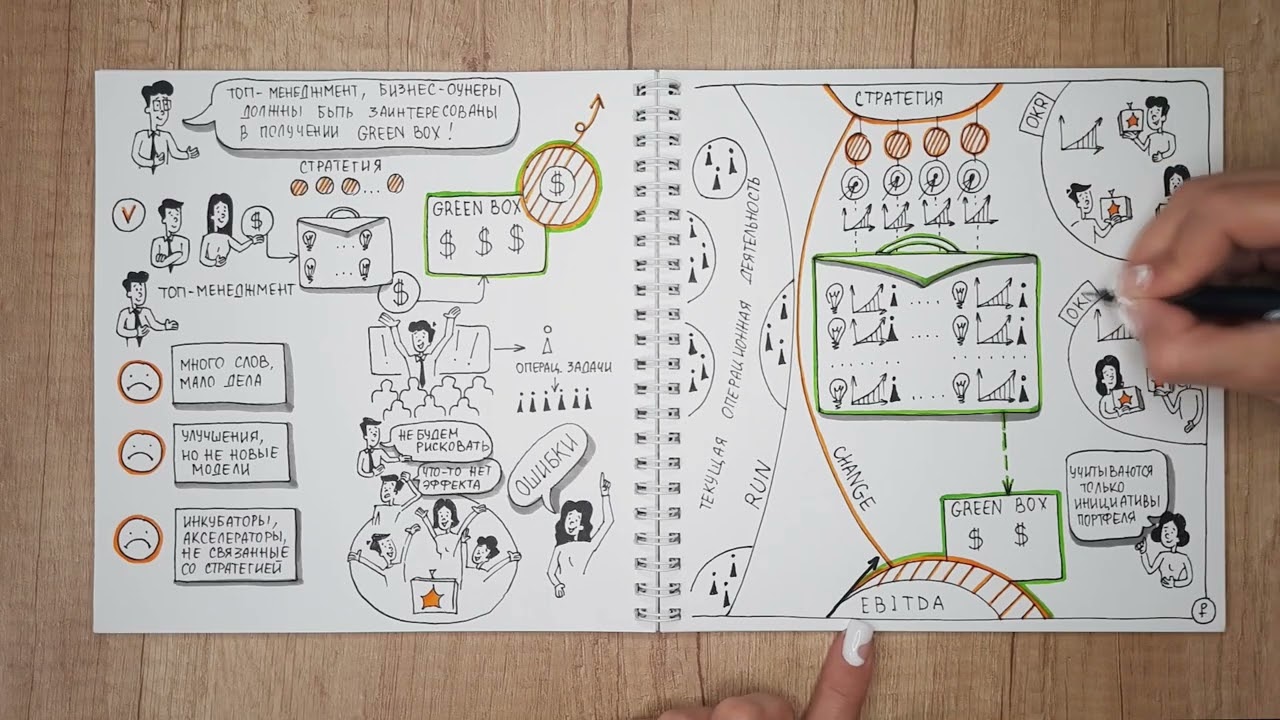 ТОП-МЕНЕДЖМЕНТ, БИЗНЕС-ОУНЕРЫ
ДОЛЖНЫ БЫТЬ ЗАИНТЕРЕСОВАНЫ
В ПОЛУЧЕНИИ GREEN BOX!
СТРАТЕГИЯ
$
GREEN BOX
$ $ $
$
ТОП-МЕНЕДЖМЕНТ
$
ОПЕРАЦ. ЗАДАЧИ
МНОГО СЛОВ,
МАЛО ДЕЛА
УЛУЧШЕНИЯ,
НО НЕ НОВЫЕ
МОДЕЛИ
ИНКУБАТОРЫ,
АКСЕЛЕРАТОРЫ,
НЕ СВЯЗАННЫЕ
СО СТРАТЕГИЕЙ
НЕ БУДЕМ
РИСКОВАТЬ
ЧТО-ТО НЕТ
ЭФФЕКТА
ОШИБКИ
ТЕКУЩАЯ ОПЕРАЦИОННАЯ ДЕЯТЕЛЬНОСТЬ
RUN
CHANGE
СТРАТЕГИЯ
OKR
УЧИТЫВАЮТСЯ
ТОЛЬКО
ИНИЦИАТИВЫ
ПОРТФЕЛЯ
GREEN BOX
$ $
EBITDA
₽